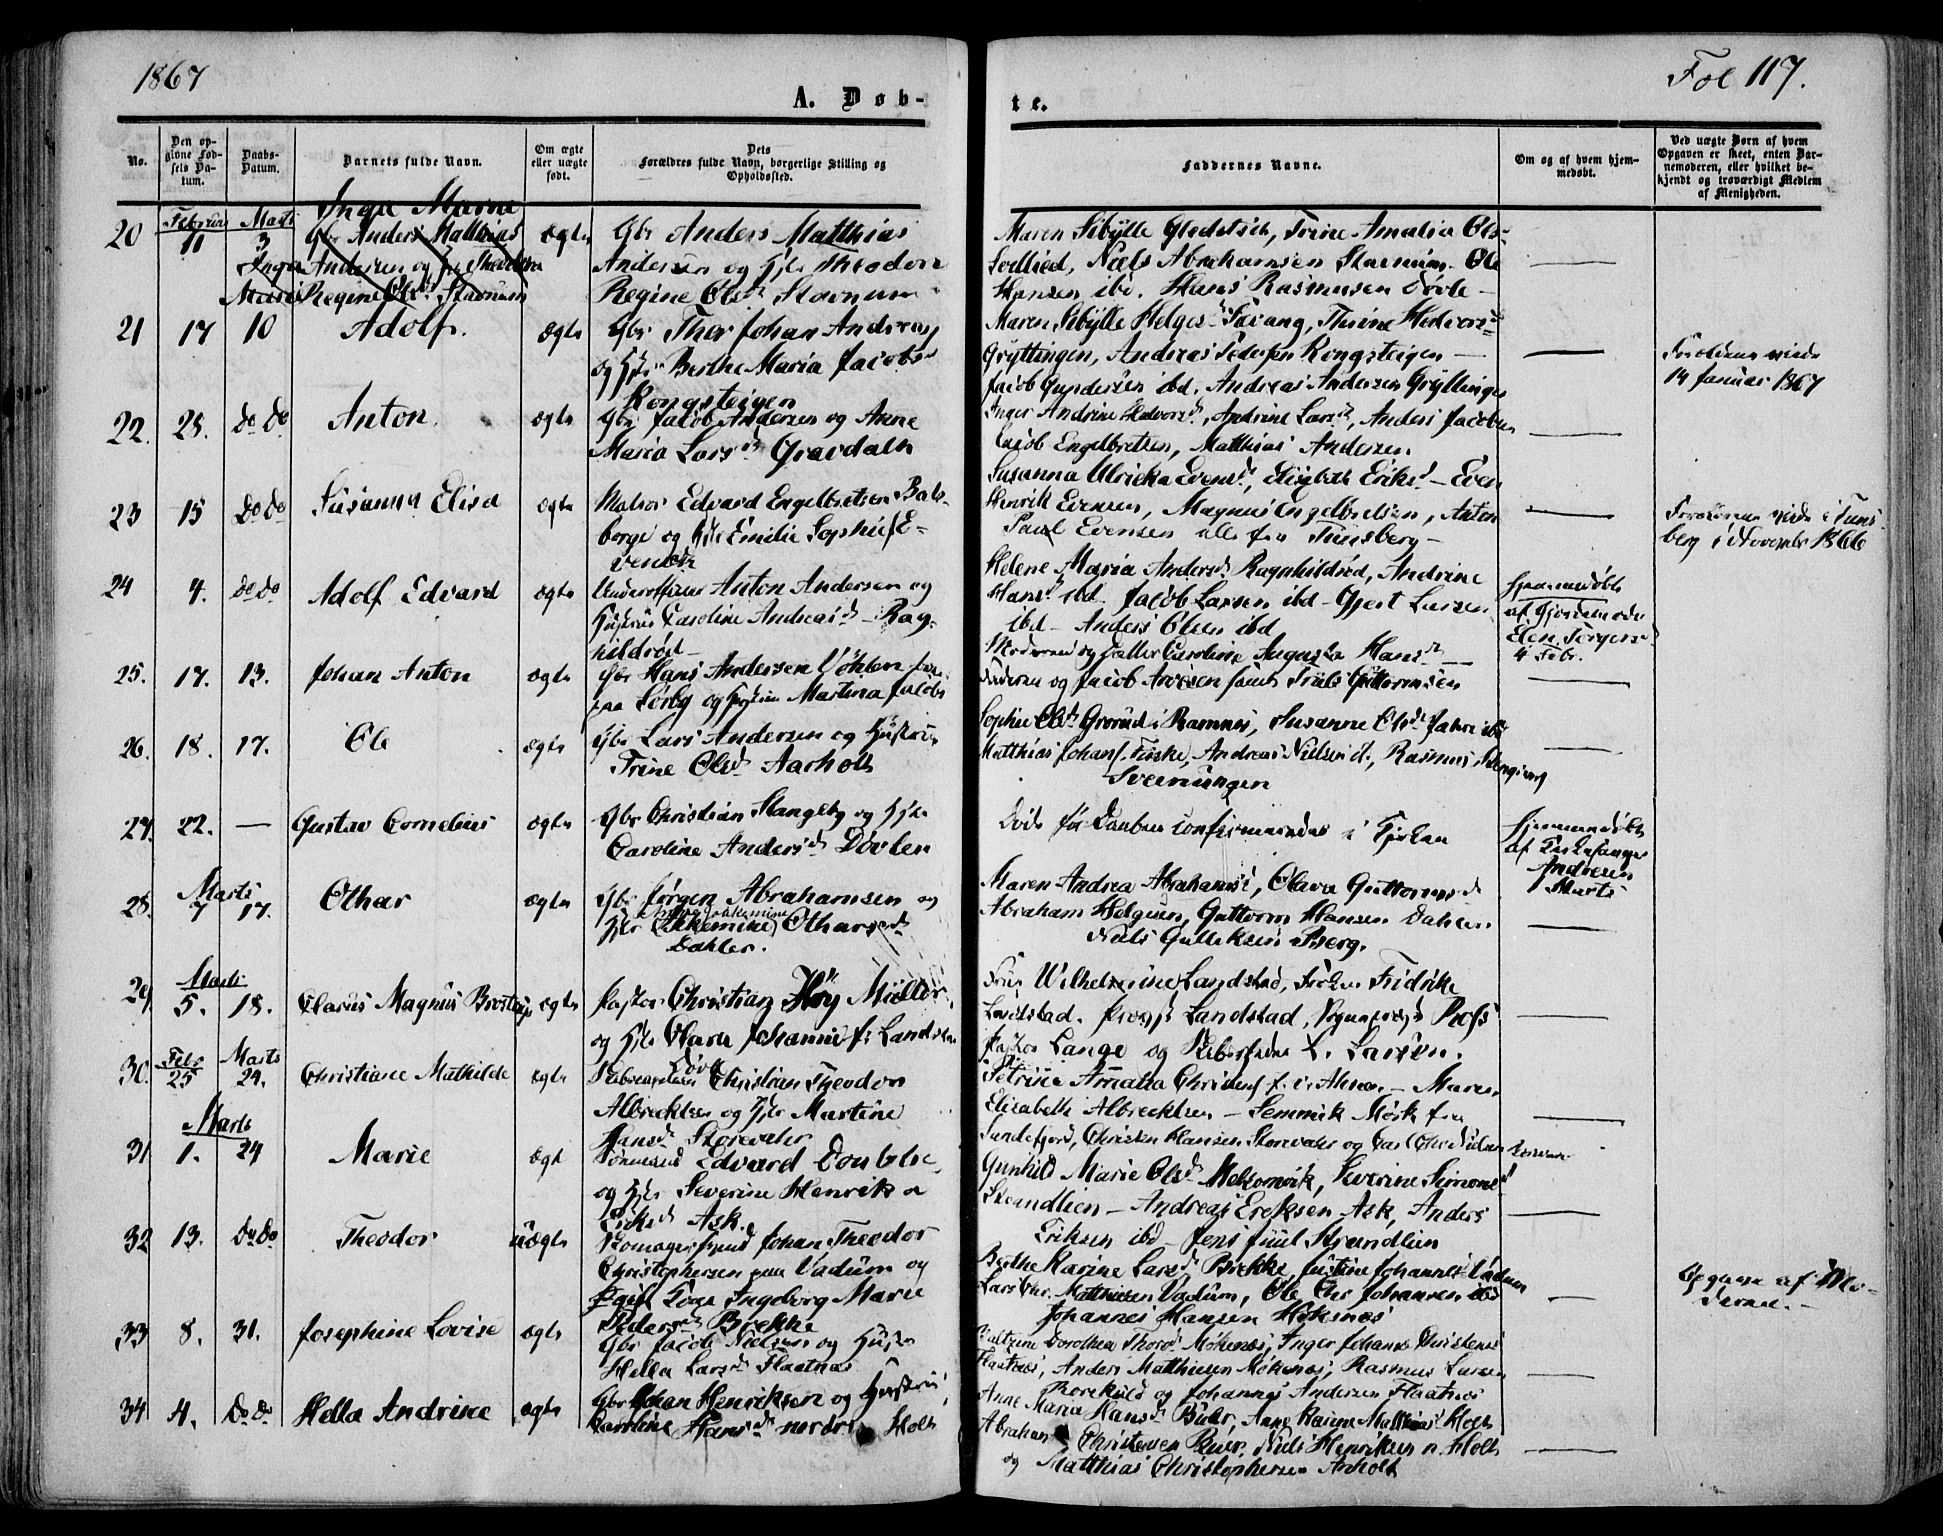 1867
Fol 117.
A. Døb-
te.
No.
Den op-
givne Fød-
sels Da-
tum.
Daabs-
Datum.
Barnets fulde Navn.
Om ægte
eller uægte
født.
Dets
Forældres fulde Navn, borgerlige Stilling og
Opholdssted.
Faddernes Navne.
Om og af hvem hjem-
medøbt.
Ved uægte Børn af hvem
Opgaven er skeet, enten Bar-
nemoderen, eller hvilket be-
kjendt og troværdigt Medlem
af Menigheden.
20 Februar 11 Marts 3
Inga Marie
Gbr Anders Matthias
Andersen og Theodora
Regine Olsd Stavnum
Inga
Marie
ægte
Gbr Anders Matthias
Andersen og Hstr Theodora
Regine Olsd Stavnum
Maren Sibylle Gloditsch, Trine Amalia Ols-
Niels Abrahamsen Stavnum. Ole
Hansen ibd. Hans Rasmussen
21 17 10 Adolf. ægte
Gbr Thor Johan Andreas
og Berthe Maria Jacobs
Kongsteigen
Maren Sibylle Helges Trine
Gryttingen, Andreas Pedersen Kongsteigen
Jacob Gundersen ibd. Andreas Andersen Gryttingen
14 Januar 1867
22. 25. Do Do Anton. ægte
Gbr Jacob Andersen og Anne
Maria Larsd Gravdahl
Inger Andrine Halvorsd, Andrine Larsd, Anders Jacobsen
Jacob Engelbretsen, Matthias Andersen
23 15 Do Do Susanna Elisa ægte
Matros Edvard Engelbretsen Bals-
berg og Hstr Emilie Sophie E-
vensen
Susanna Ulricka Evensd, Elisabeth Eriksd - Even
Henrik Evensen, Magnus Engelbretsen, Anton
Paul Evensen alle fra Tunsberg
i Tuns-
berg i November 1866
24 4. Do Do Adolf Edvard ægte
Underofficer Anton Andersen og
Hustru Caroline Andreasd - Rag-
hildrød
Helene Maria Andersd Ragnhildrød, Andrine
Hansd ibd - Jacob Larsen ibd - Gjert Larsen
ibd - Anders Olsen ibd
Hjemmedøbt
af Gjordemoder
Elen Jørgensd
4 Febr.
25. 17. 13. Johan Anton ægte
Gbr Hans Andersen
paa Sørby og Hustru Martina Jacobs
Moderen og Caroline Augusta Hansd
Faderen og Jacob Samt Truls Guttormsen
26. 18. 17. Ole ægte
Gbr Lars Andersen og Hustru
Trine Olsd Aarholt
Sophie Olsd Grorud i Ramnes, Susanne Olsd
Matthias Johans. Fiske, Andreas Nielsen i., Rasmus
Sveinungen
27. 22. — Gustav Cornelius ægte
Gbr Christian Stangeby og Hstr
Caroline Andersd Døvlen
Døde før Daaben confirmeredes i Kirken
Hjemmedøbt
af Kirkesanger
Andresen
Marts
28. Marts 7 17. Othar ægte
Gbr Jørgen Abrahamsen og
Otharsd
Dahler.
Maren Andrea Abrahamsd, Olava Guttormsd
Abraham Helgesen, Guttorm Hansen Dahler
Niels Gulleksen Berg.
29. Marts 5. 18. Clarus Magnus Brostrup ægte
Pastor Christian Høy Müller,
og Hstr Clara Johanne f. Landstad
Frue Wilhelmine Landstad, Frøken Fredrike
Landstad. Provst Landstad, Sogneprest
Pastor Lange og L. Larsen.
30. Febr 25 Marts 24. Christiane Mathilde ægte
Christian Theodor
Albrecktsen og Hstr Martine
Hansd Storevahr
Petrine Amalia
Maren
Elisabeth Albrecktsen - Semmik Mørk fra
Sandefjord, Christen Hansen Storevahr og Carl
31. Marts 1. 24 Marie ægte
Sømand Edvard
og Hstr Severine Henrikke
Eriksd Ask.
Gunhild Marie Olsd Melsomvik, Severine Simonsd
Strandlien - Andreas Eriksen Ask, Anders
Eriksen ibd - Jens Juul Strandlien
32 13. Do Do Theodor uægte
Johan Theodor
Christophersen paa Vadum og
Pige Tone Ingeborg Marie
Pedersd Brekke
Berthe Karine Larsd Brekke, Justine Johannesd Vadum
Lars Chr. Matthiesen Vadum, Ole Chr Johansen ibd
Johannes Hansen Møkenæs
Opgave af Mo-
deren. -
33 8. 31. Josephine Lovise ægte
Gbr Jacob Nielsen og Hustr
Hella Larsd Flaatnæs
Dorothea Thorsd Møkenæs, Inger Johanne Christensd
Flaatnæs, Anders Matthiesen Møkenæs, Rasmus Larsen
og Johannes Andersen Flaatnæs
34 4. Do Do Hella Andrine ægte
Gbr Johan Henriksen og Hustru
Karoline Hansd nordre Holt
Anne Maria Hansd Buer, Anne Karine Matthiasd Holt
Abraham Christensen Buer, Niels Henriksen n. Holt
og Matthias Christophersen Arholt